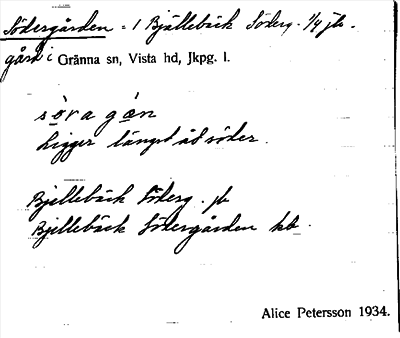 Södergården = 1 Bjällebäck Söderg. 1/4 jb.
gård i Gränna sn, Vista hd, Jkpg. l.
sö̀ragán
Ligger längst åt söder.
Bjellebäck Söderg. jb
Bjellebäck Södergården kb.
Alice Petersson 1934.